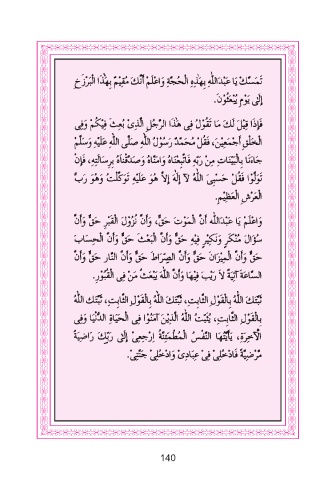 تَمَسَّكْ يَا عَبْدَاللّٰهِ بِهٰذِهِ الْحُجَّةِ وَاعْلَمْ أَنَّكَ مُقِيْمٌ بِهٰذَا الْبَرْزَخِ
إِلىٰ يَوْمِ يُبْعَثُوْنَ.
فَإِذَا قِيْلَ لَكَ مَا تَقُوْلُ فِى هٰذَا الرَّجُلِ الَّذِىْ بُعِثَ فِيْكُمْ وَفِى
الْخَلْقِ أَجْمَعِيْنَ، فَقُلْ مُحَمَّدٌ رَسُوْلُ اللّٰهِ صَلَّى اللّٰهُ عَلَيْهِ وَسَلَّمَ
جَاءَنَا بِالْبَيِّنَاتِ مِنْ رَبِّهِ فَاتَّبَعْنَاهُ وَآمَنَّاهُ وَصَدَّقْنَاهُ بِرِسَالَتِهِ، فَإِنْ
تَوَلَّوْا فَقُلْ حَسْبِىَ اللّٰهُ لَآ إِلٰهَ إِلاَّ هُوَ عَلَيْهِ تَوَكَّلْتُ وَهُوَ رَبُّ
الْعَرْشِ الْعَظِيْمِ.
وَاعْلَمْ يَا عَبْدَاللّٰهِ أَنَّ الْمَوْتَ حَقٌّ، وَأَنَّ نُزُوْلَ الْقَبْرِ حَقٌّ وَأَنَّ
سُؤَالَ مُنْكَرٍ وَنَكِيْرٍ فِيْهِ حَقٌّ وَأَنَّ الْبَعْثَ حَقٌّ وَأَنَّ الْحِسَابَ
حَقٌّ وَأَنَّ الْمِيْزَانَ حَقٌّ وَأَنَّ الصِّرَاطَ حَقٌّ وَأَنَّ النَّارَ حَقٌّ وَأَنَّ
السَّاعَةَ آتِيَةٌ لاَ رَيْبَ فِيْهَا وَأَنَّ اللّٰهَ يَبْعَثُ مَنْ فِى الْقُبُوْرِ.
ثَبَّتَكَ اللّٰهُ بِالْقَوْلِ الثَّابِتِ، ثَبَّتَكَ اللّٰهُ بِالْقَوْلِ الثَّابِتِ، ثَبَّتَكَ اللّٰهُ
بِالْقَوْلِ الثَّابِتِ، يُثَبِّتُ اللّٰهُ الَّذِيْنَ آمَنُوْا فِى الْحَيَاةِ الدُّنْيَا وَفِى
الْآخِرَةِ، يٰأَيَّتُهَا النَّفْسُ الْمُطْمَئِنَّةُ اِرْجِعِىْ إِلىٰ رَبِّكِ رَاضِيَةً
مَرْضِيَّةً فَادْخُلِىْ فِىْ عِبَادِىْ وَادْخُلِىْ جَنَّتِىْ.
140